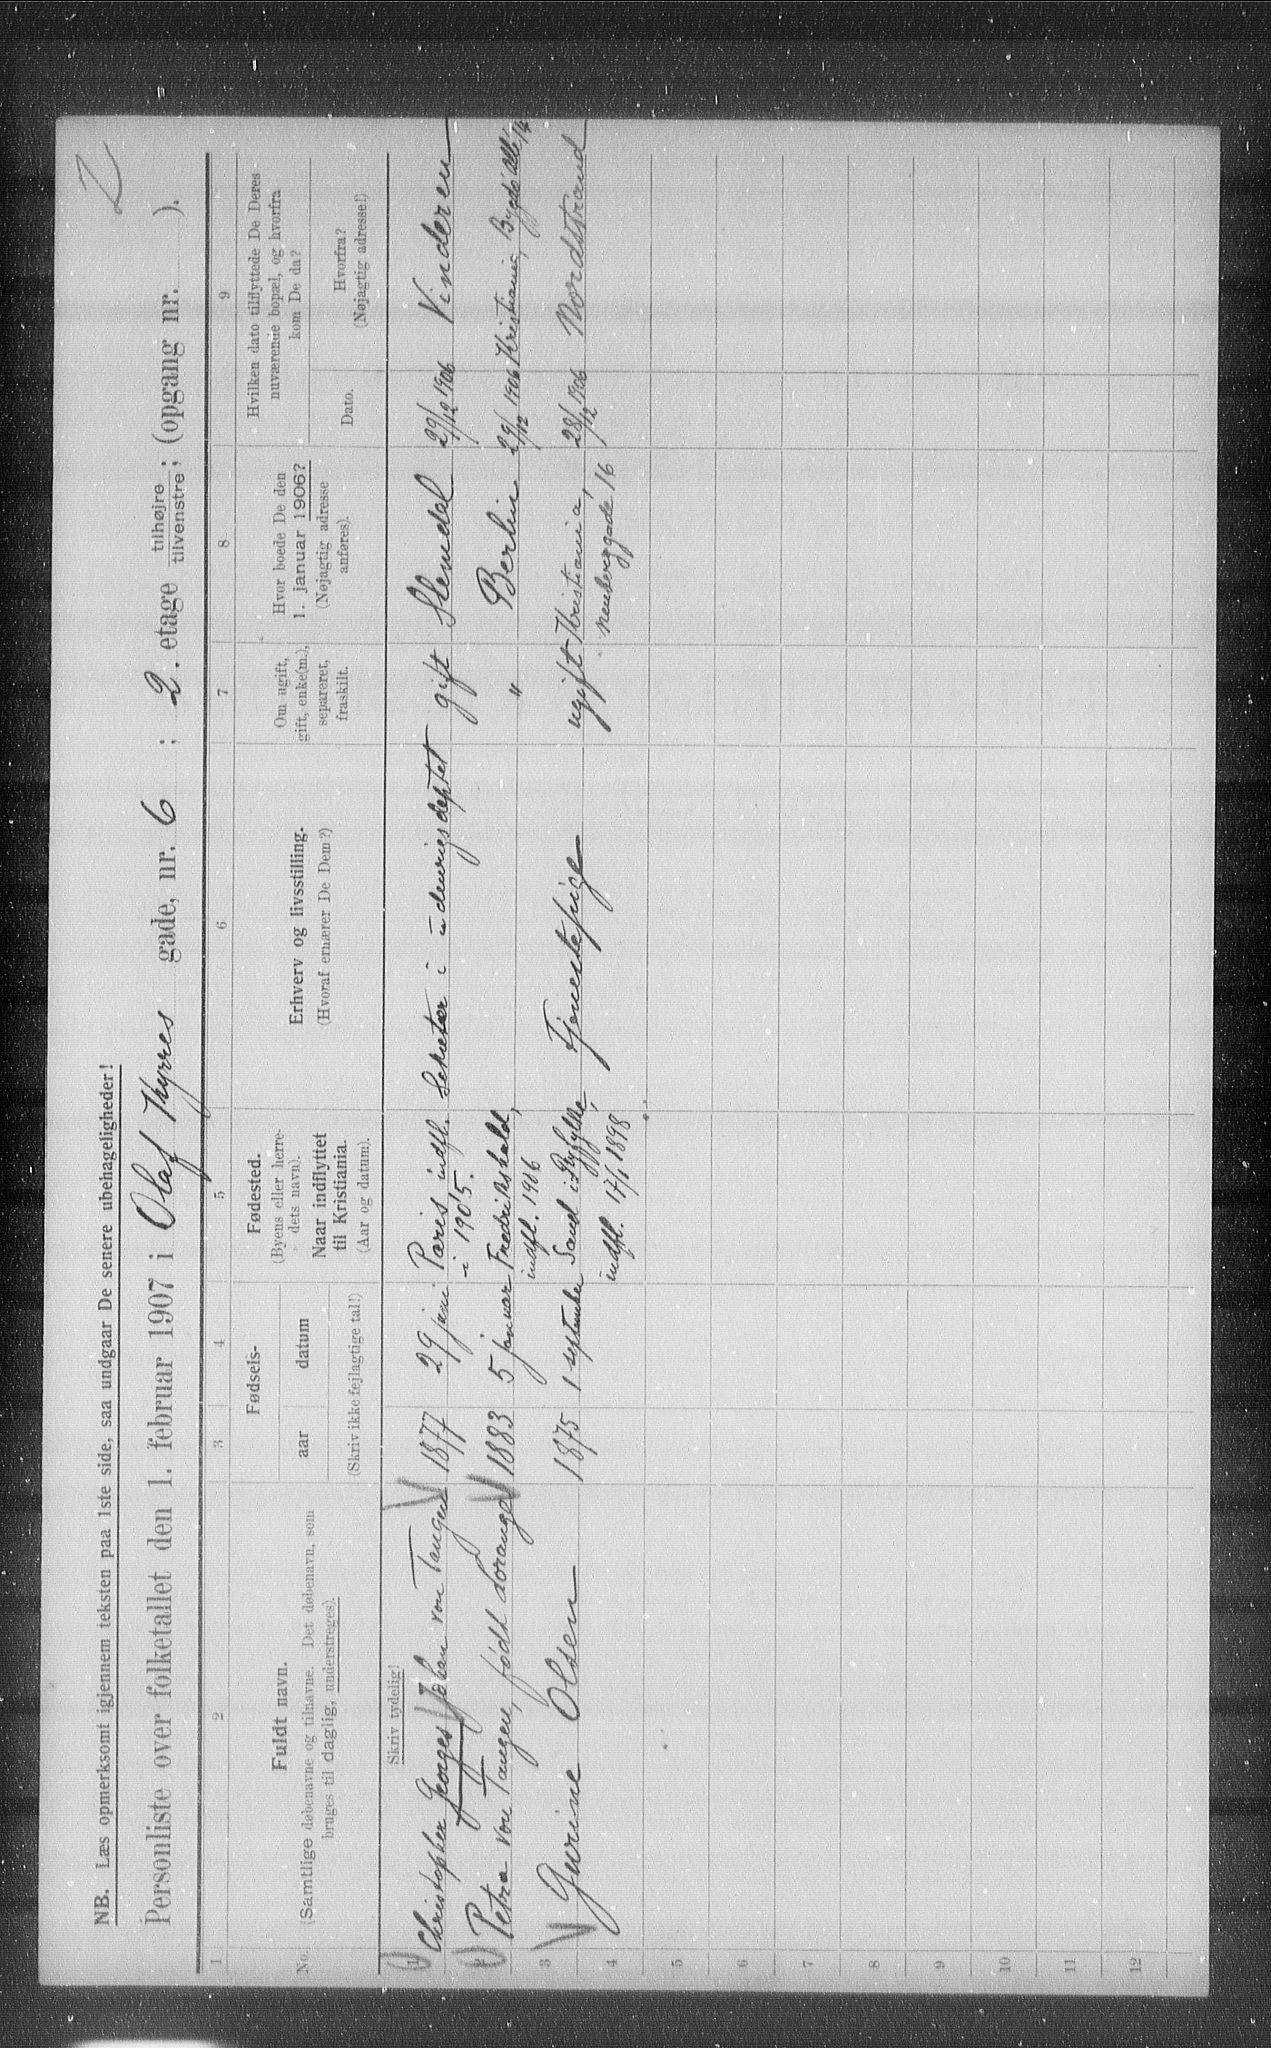 2
NB. Læs opmerksomt igjennem teksten paa 1ste side, saa undgaar De senere ubehageligheder!
Personliste over folketallet den 1. februar 1907 i Olaf Kyrres gade, nr. 6 ; 2. etage tilhøjre/tilvenstre; (opgang nr. ).
1 2 3 4 5 6 7 8 9
No.
Fuldt navn.
(Samtlige døbenavne og tilnavne. Det døbenavn, som
bruges til daglig, understreges).
Fødsels-
aar datum
(Skriv ikke fejlagtige tal!)
Fødested.
(Byens eller herre-
dets navn).
Naar indflyttet
til Kristiania.
(Aar og datum).
Erhverv og livsstilling.
(Hvoraf ernærer De Dem?)
Om ugift,
gift, enke(m.),
separeret,
fraskilt.
Hvor boede De den
1. januar 1906?
(Nøjagtig adresse
anføres).
Hvilken dato tilflyttede De Deres
nuværende bopæl, og hvorfra
kom De da?
Dato.
Hvorfra?
(Nøjagtig adresse!)
Skriv tydelig!
1 Christopher Georges Johan von Tangen 1877 29 juni Paris indfl. Sekretær i udenrigsdeptet gift 29/12 1906 Vinderen
i 1905.
2 Petra von Tangen, født Lorange 1883 5 januar Fredrikshald, " Berlin 29/12 1906 Kristiania, Bygdø allé 14
indfl. 1906
3 Gurine Olsen 1875 1 september Sand i Ryfylke, Tjenestepige ugift Kristiania, 28/12 1906 Nordstrand
4 indfl. 17/1 1898 16
5
6
7
8
9
10
11
12